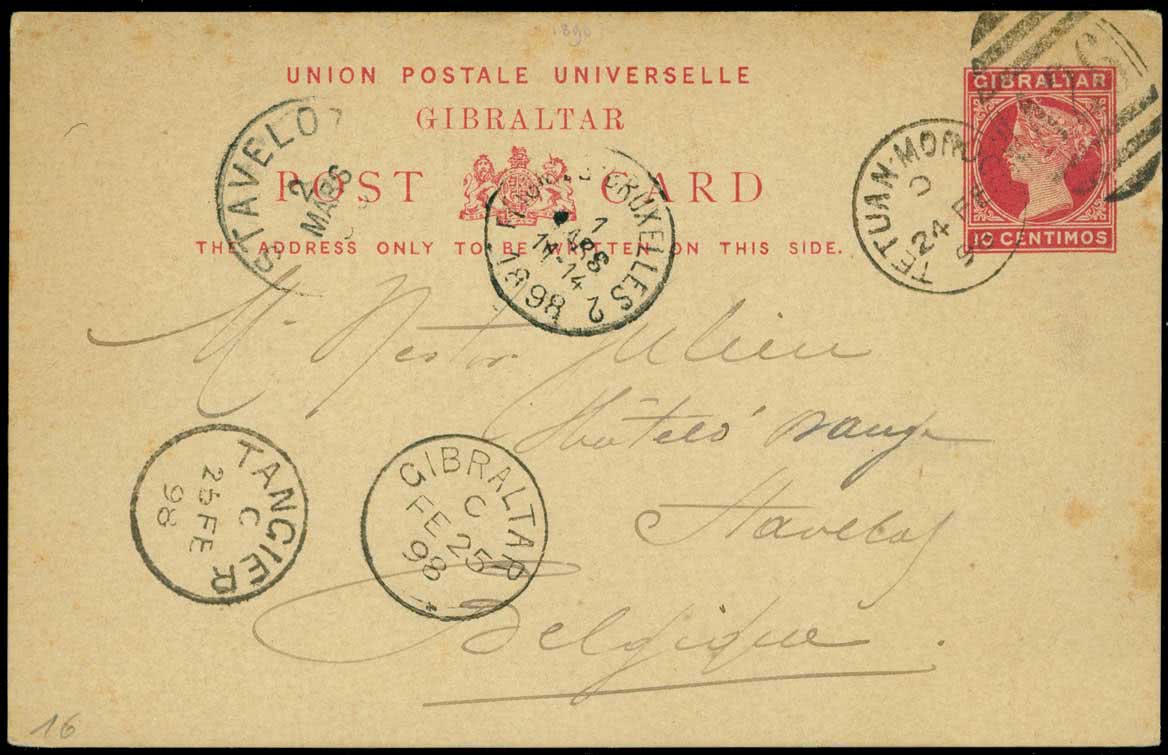 1890
UNION POSTALE UNIVERSELLE
GIBRALTAR
POST CARD
THE ADDRESS ONLY TO BE WRITTEN ON THIS SIDE.
GIBRALTAR
10 CENTIMOS
TETUAN-MOROCCO
D
24 FE
98
STAVELOT
2
MARS
BRUXELLES 2
1
MARS
11-14
98
Mr Nestor Julien
Stavelot
Belgique.
TANGIER
C
25 FE
98
GIBRALTAR
C
FE 25
98
16